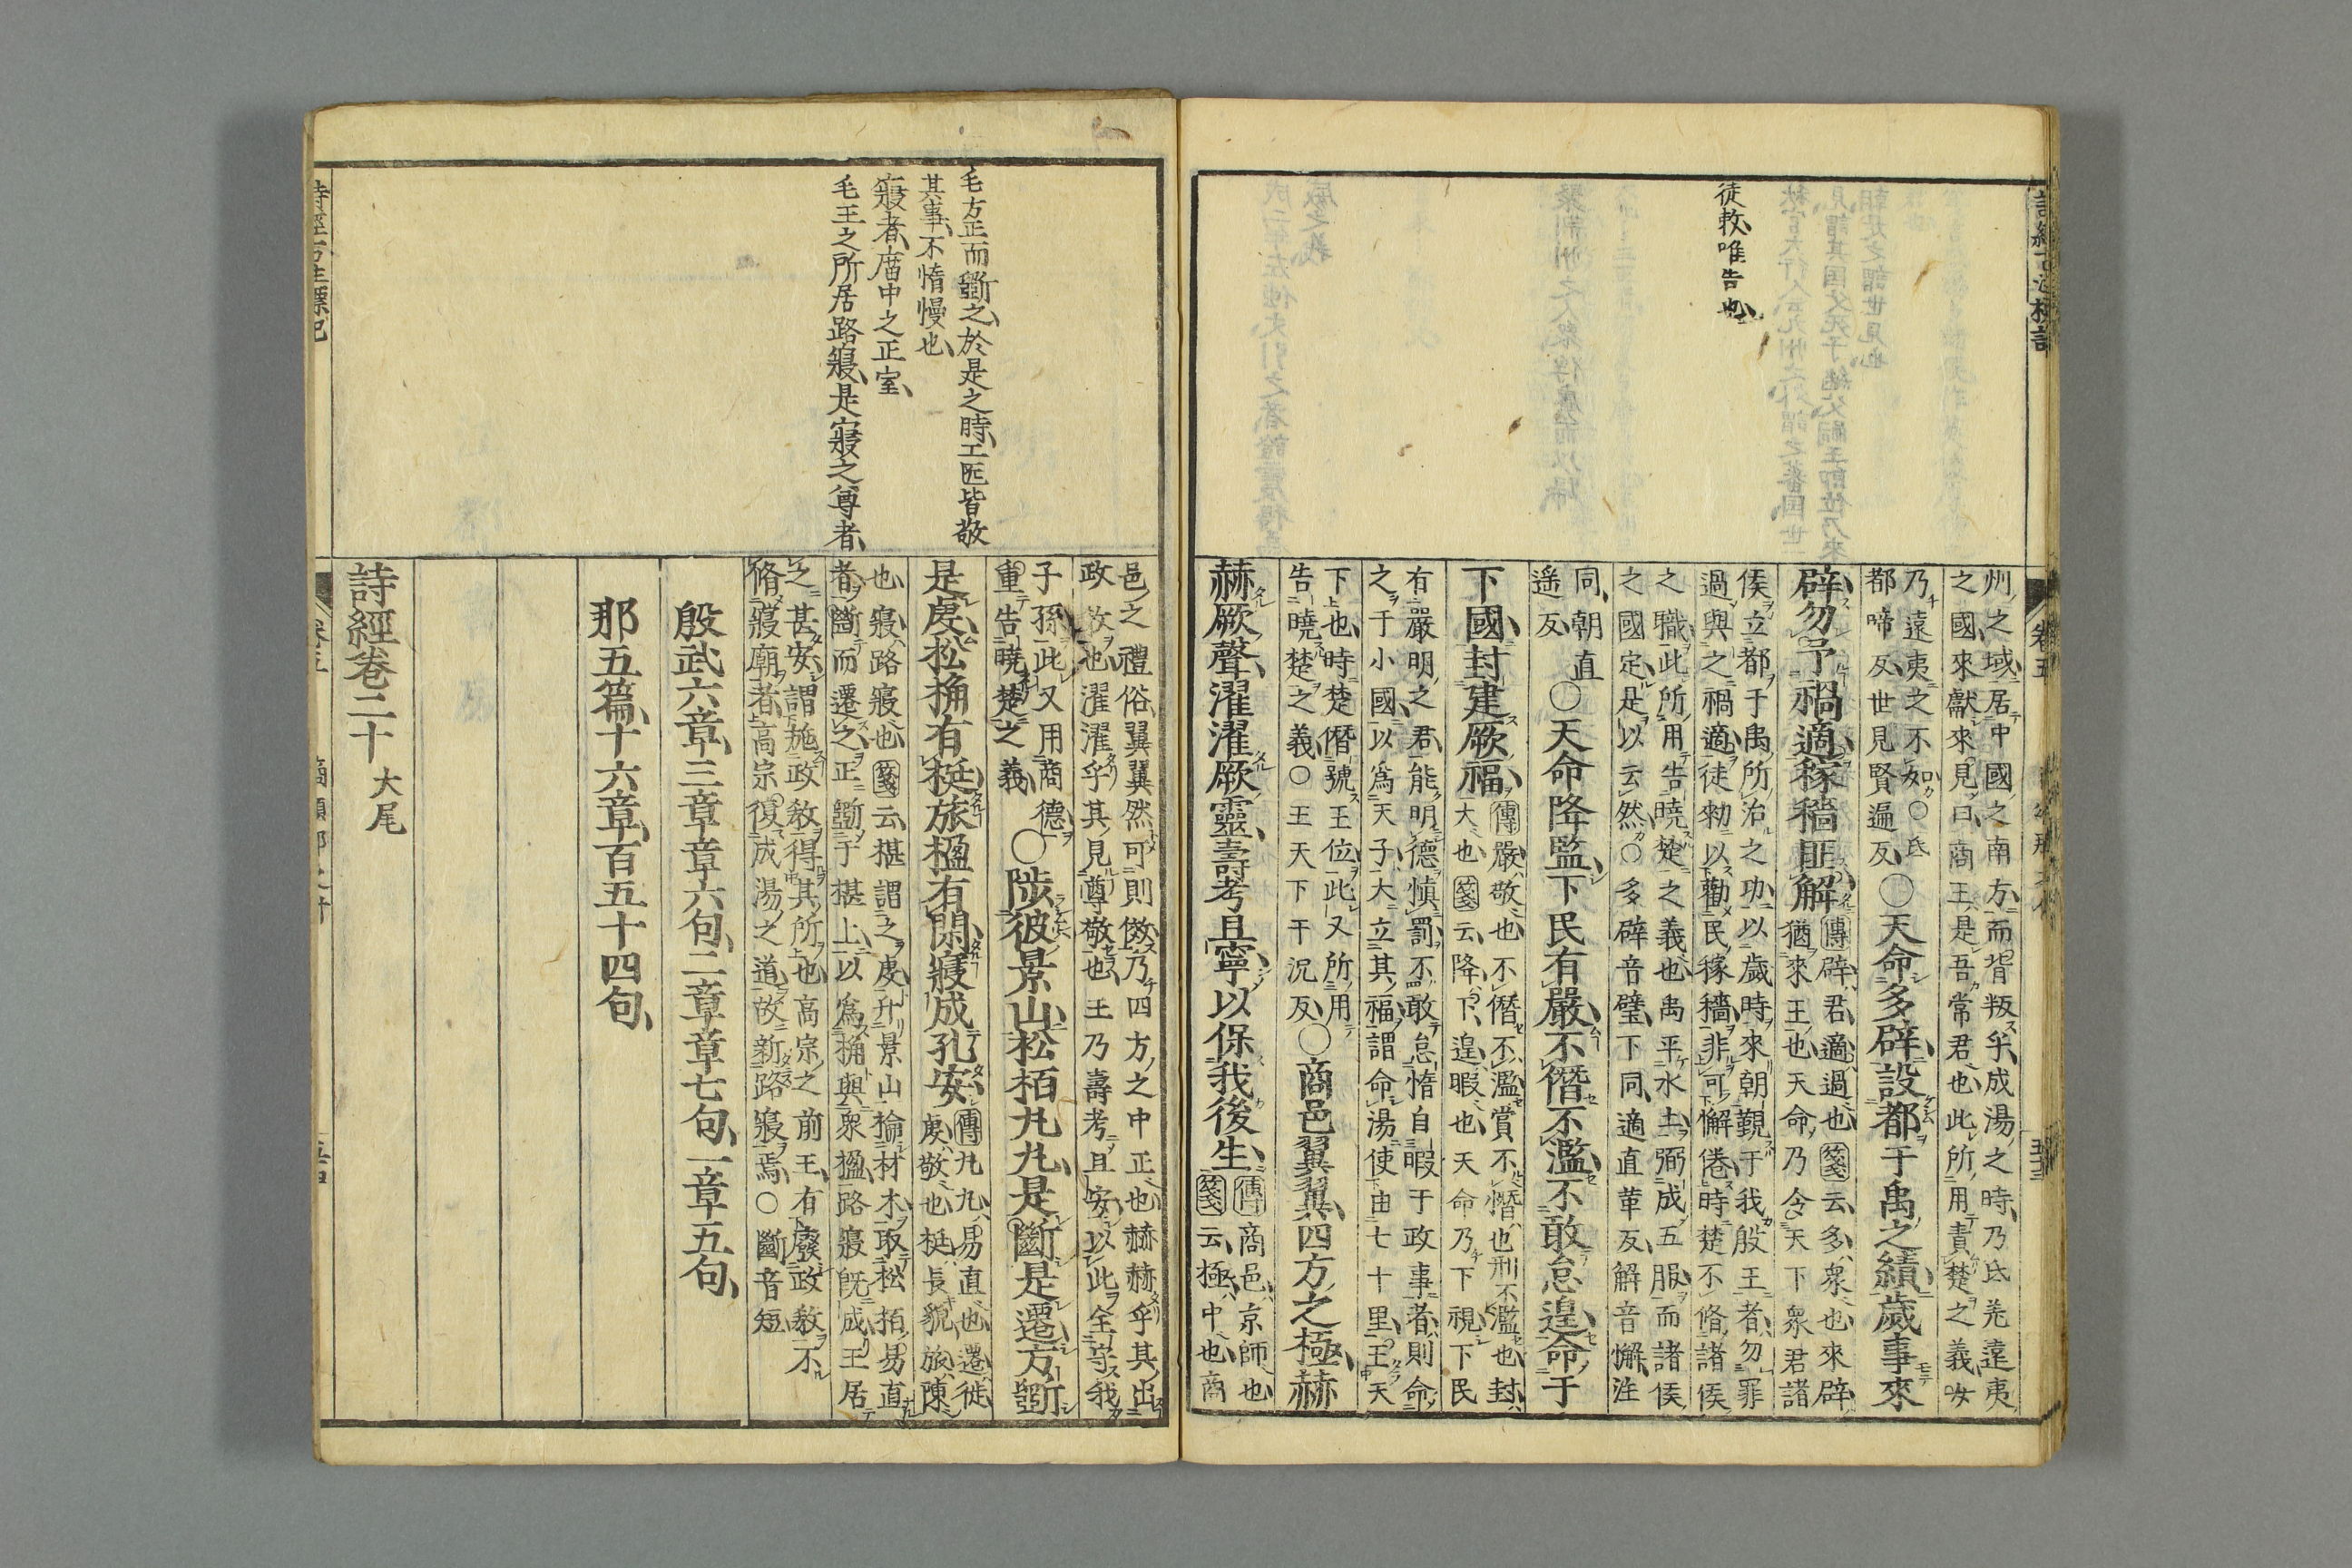 徒敕唯告也
州之域居中國之南方而背叛乎成湯之時乃氐羌遠夷
之國來獻來見曰商王是吾常君也此所用責楚之義女
乃遠夷之不如○氐
都啼反世見賢遍反○天命多辟設都于禹之績歲事來
辟勿予禍適稼穡匪解傳辟君適過也箋云多衆也來辟
猶來王也天命乃令天下衆君諸
侯立都于禹所治之功以歲時來朝覲于我殷王者勿罪
過與之禍適徒勑以勸民稼穡非可懈倦時楚不脩諸侯
之職此所用告曉楚之義也禹平水土弼成五服而諸侯
之國定是以云然○多辟音璧下同適直革反解音懈注
同朝直
遙反○天命降監下民有嚴不僭不濫不敢怠遑命于
下國封建厥福傳嚴敬也不僭不濫賞不僭也刑不濫也封
大也箋云降下遑暇也天命乃下視下民
有嚴明之君能明德慎罰不敢怠惰自暇于政事者則命
之于小國以爲天子大立其福謂命湯使由七十里王天
下也時楚僭號王位此又所用
告曉楚之義○王天下于況反○商邑翼翼四方之極赫
赫厥聲濯濯厥靈壽考且寧以保我後生傳商邑京師也
箋云極中也商
邑之禮俗翼翼然可則傚乃四方之中正也赫赫乎其出
政敎也濯濯乎其見尊敬也王乃壽考且安以此全守我
子孫此又用商德
重告曉楚之義○陟彼景山松栢丸丸是斷是遷方斲
是虔松桷有梴旅楹有閑寢成孔安傳丸丸易直也遷徙
虔敬也梴長貌旅陳
也寢路寢也箋云椹謂之虔升景山掄材木取松栢易直
者斷而遷之正斲于椹上以爲桷與衆楹路寢旣成王居
之甚安謂施政敎得其所也高宗之前王有廢政敎不
脩寢廟者高宗復成湯之道故新路寢焉○斷音短
殷武六章三章章六句二章章七句一章五句
那五篇十六章百五十四句
詩經卷二十 大尾
毛方正而斲之於是之時工匠皆敬
其事不惰慢也
寢者庿中之正室
毛王之所居路寢是寢之尊者